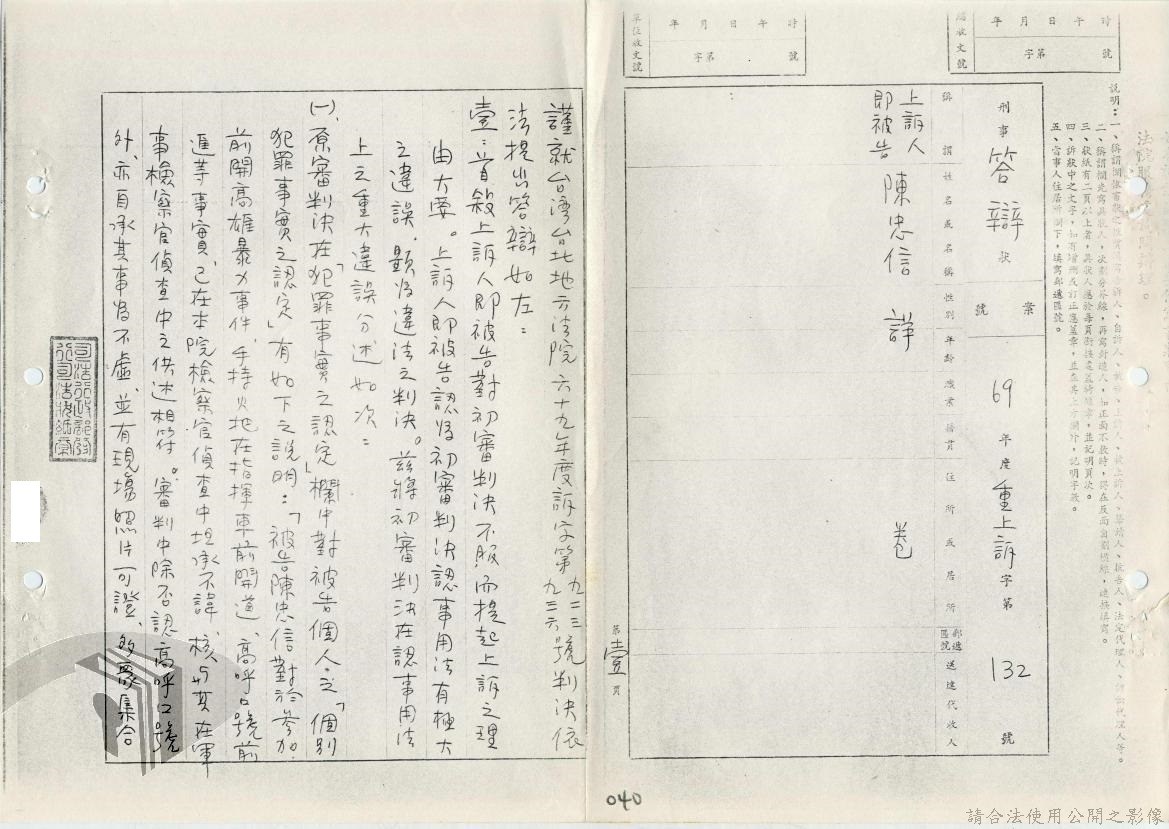 年 月 日 午 時
字第 號
總收文號
年 月 日 午 時
字第 號
單位收文號
說明：一、
二、稱謂欄先寫具狀人，次劃分界線，再寫對造人，如正面不敷時，得在反面自劃橫線，連續填寫。
三、狀紙有二頁以上者，具狀人應於每頁銜接處蓋騎縫章，並記明頁次。
四、訴狀中之文字，如有增刪或訂正應蓋章，並在其上方欄外，記明字數。
五、當事人住居所欄下，填寫郵遞區號。
刑事答辯狀
案號 69 年度重上訴字第 132 號
稱謂 姓名或名稱 性別 年齡 職業 籍貫 住所或居所 郵遞區號 送達代收人
上訴人
即被告 陳忠信 詳 卷
第壹頁
謹就台灣台北地方法院六十九年度訴字第九二三、九三六號判決依
法提出答辯如左：
壹：首敘上訴人即被告對初審判決不服而提起上訴之理
由大要。上訴人即被告認為初審判決認事用法有極大
之違誤，顯為違法之判決。茲將初審判決在認事用法
上之重大違誤分述如次：
(一)、原審判決在「犯罪事實之認定」欄中對被告個人之「個別
犯罪事實之認定」有如下之說明：「被告陳忠信對於參加
前開高雄暴力事件，手持火把在指揮車前開道、高呼口號前
進等事實，已在本院檢察官偵查中坦承不諱，核與其在軍
事檢察官偵查中之供述相符。審判中除否認高呼口號
外，亦自承其事為不虛，並有現場照片可證，多眾集合
司法行政部發行司法狀紙章
040
請合法使用公開之影像